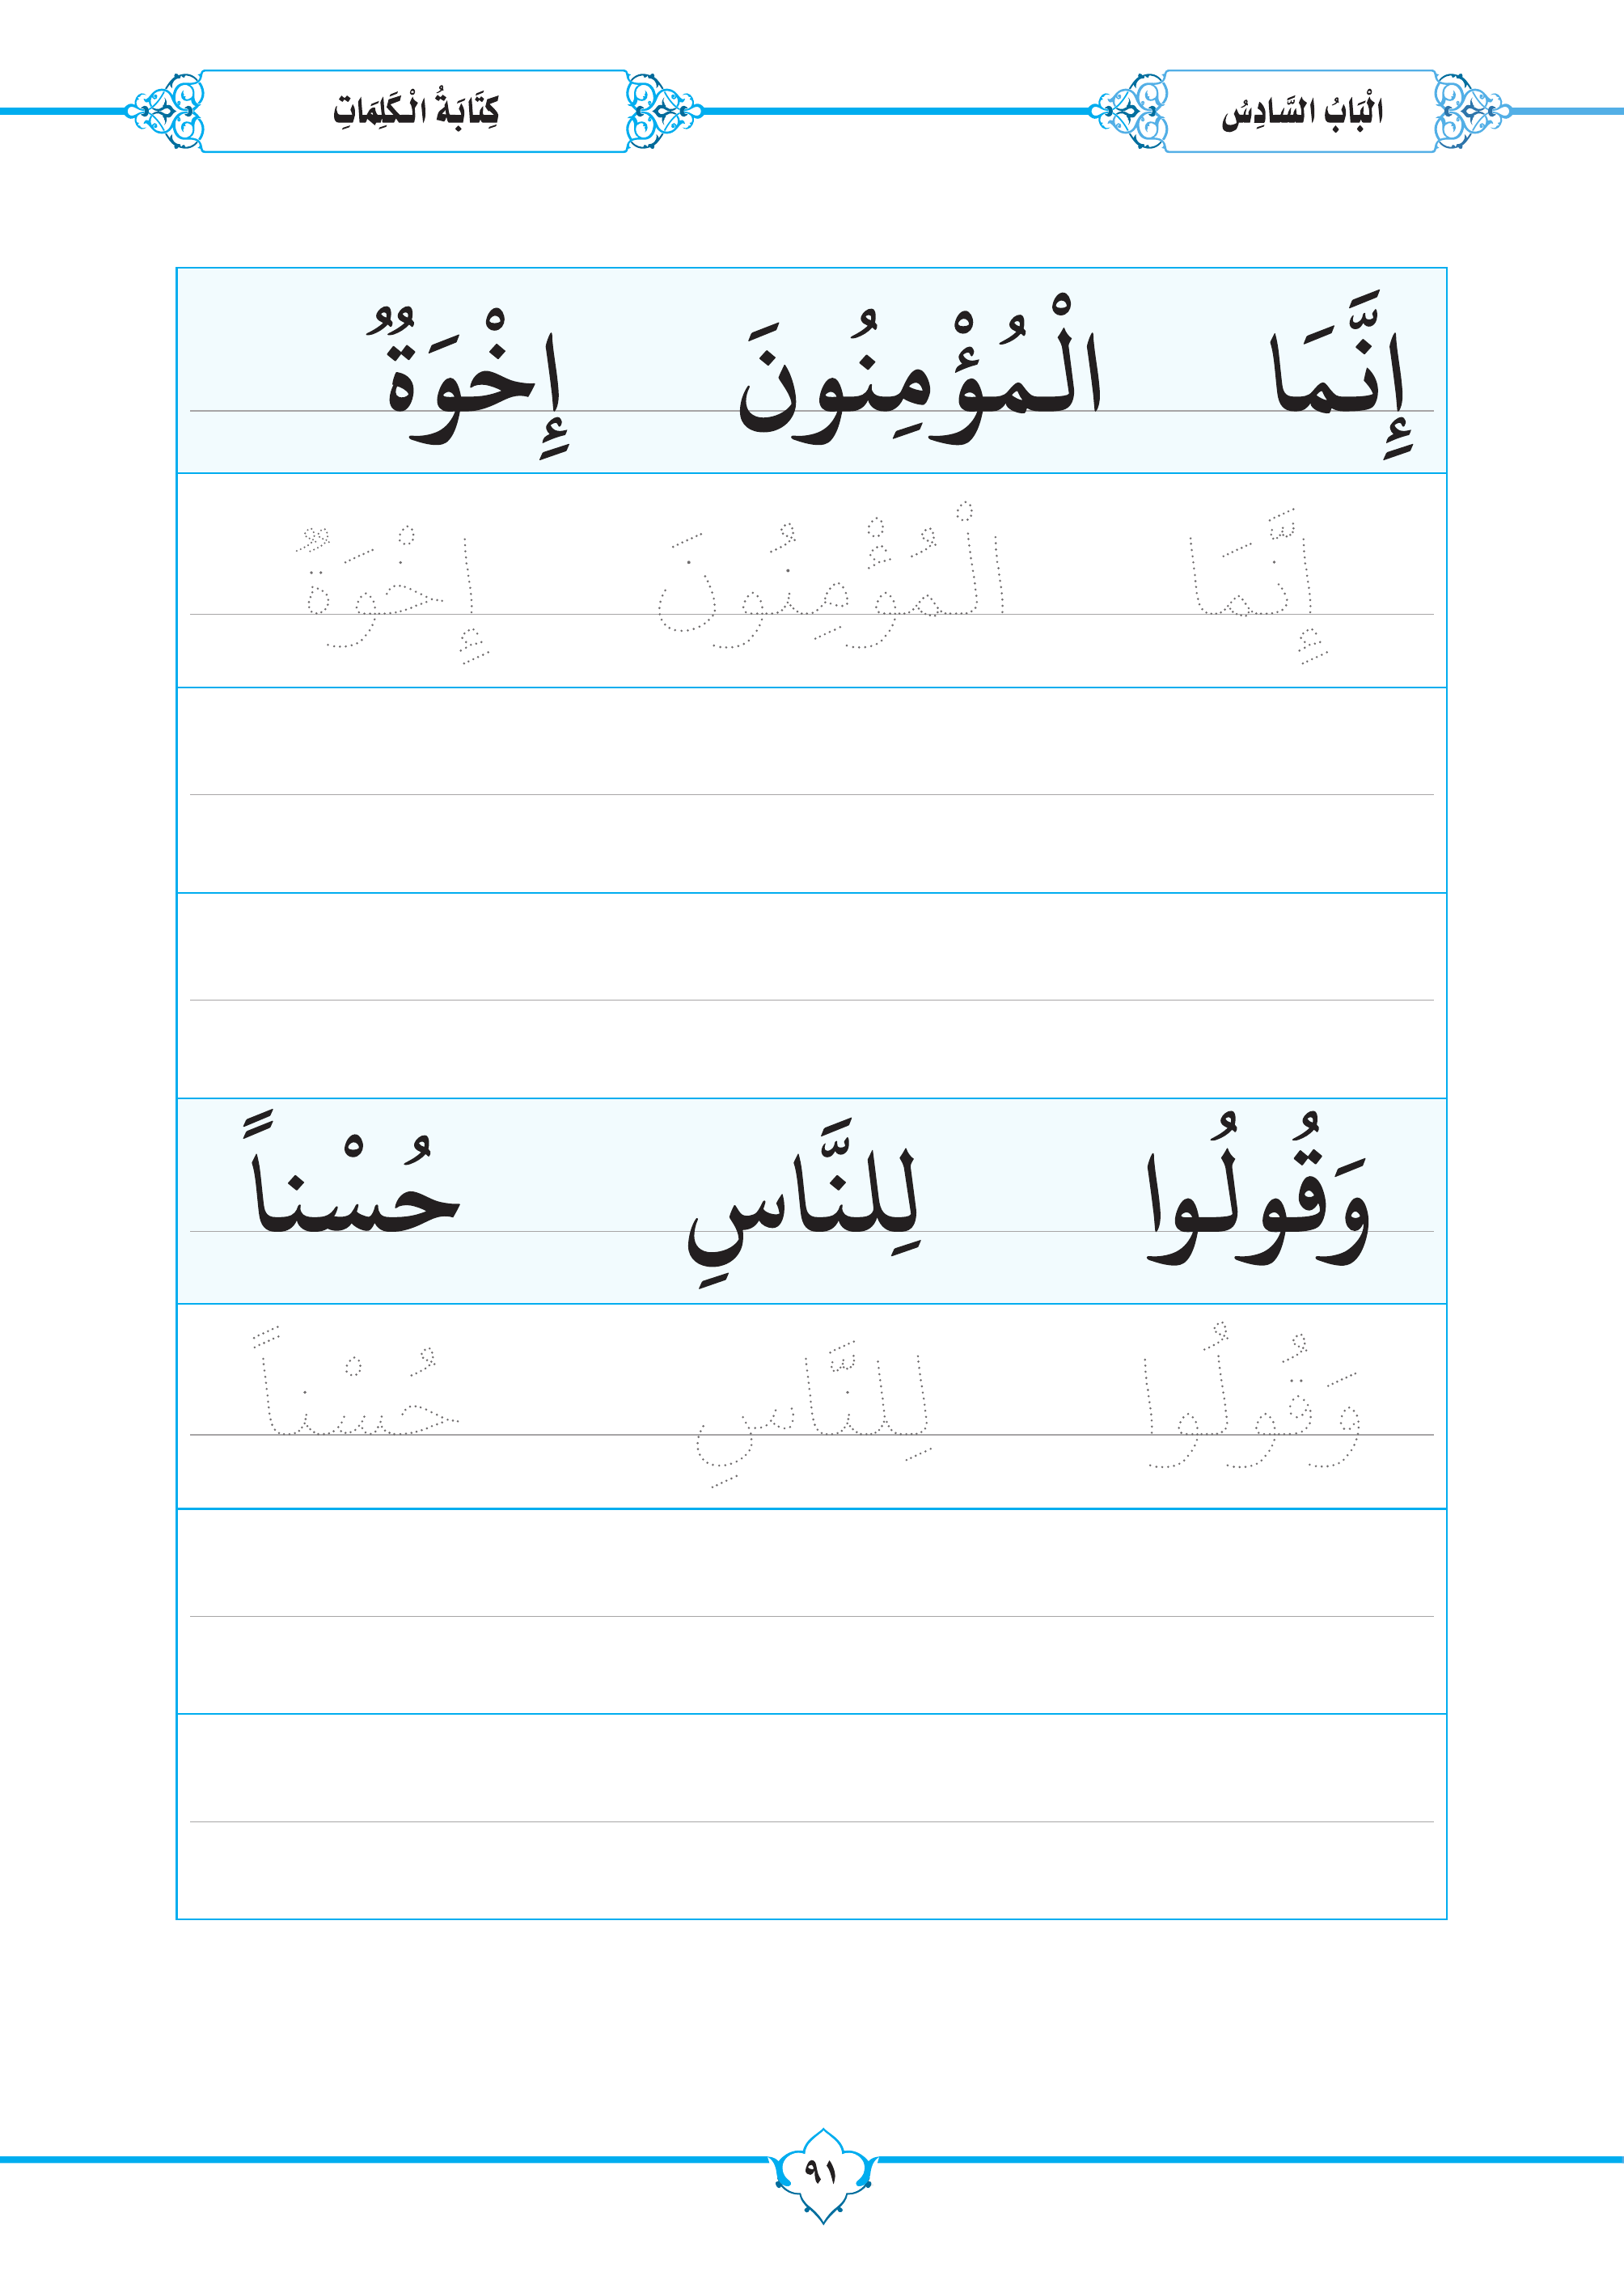 الْبَابُ السَّادِسُ
كِتَابَةُ الْكَلِمَاتِ
إِنَّمَا الْمُؤْمِنُونَ إِخْوَةٌ
إِنَّمَا الْمُؤْمِنُونَ إِخْوَةٌ
وَقُولُوا لِلنَّاسِ حُسْناً
وَقُولُوا لِلنَّاسِ حُسْناً
٩١